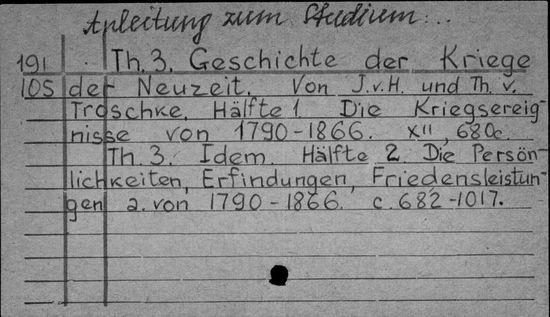 Anleitung zum Studium...
191 Th. 3. Geschichte der Kriege
105 der Neuzeit. Von J.v.H. und Th. v.
Troschke. Hälfte 1 Die Kriegsereig-
nisse von 1790-1866. XII, 680c.
Th. 3. Idem. Hälfte 2. Die Persön-
lichkeiten, Erfindungen, Friedensleistun-
gen a. von 1790-1866. c. 682-1017.